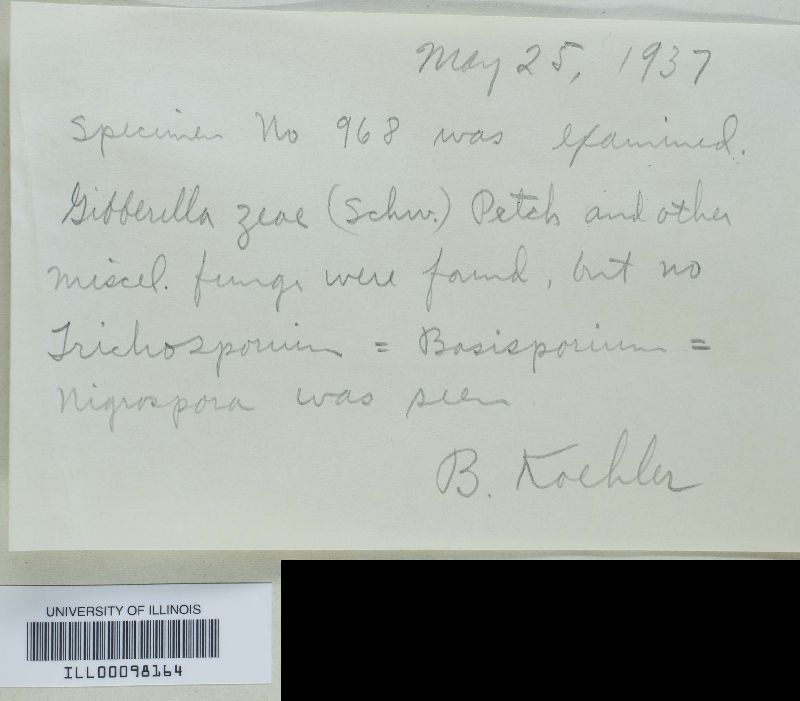 May 25, 1937
Specimen No 968 was examined.
Gibberella zeae (Schw.) Petch and other
miscel. fungi were found, but no
Trichosporium = Basisporium =
Nigrospora was seen.
B. Koehler
UNIVERSITY OF ILLINOIS
ILL00098164